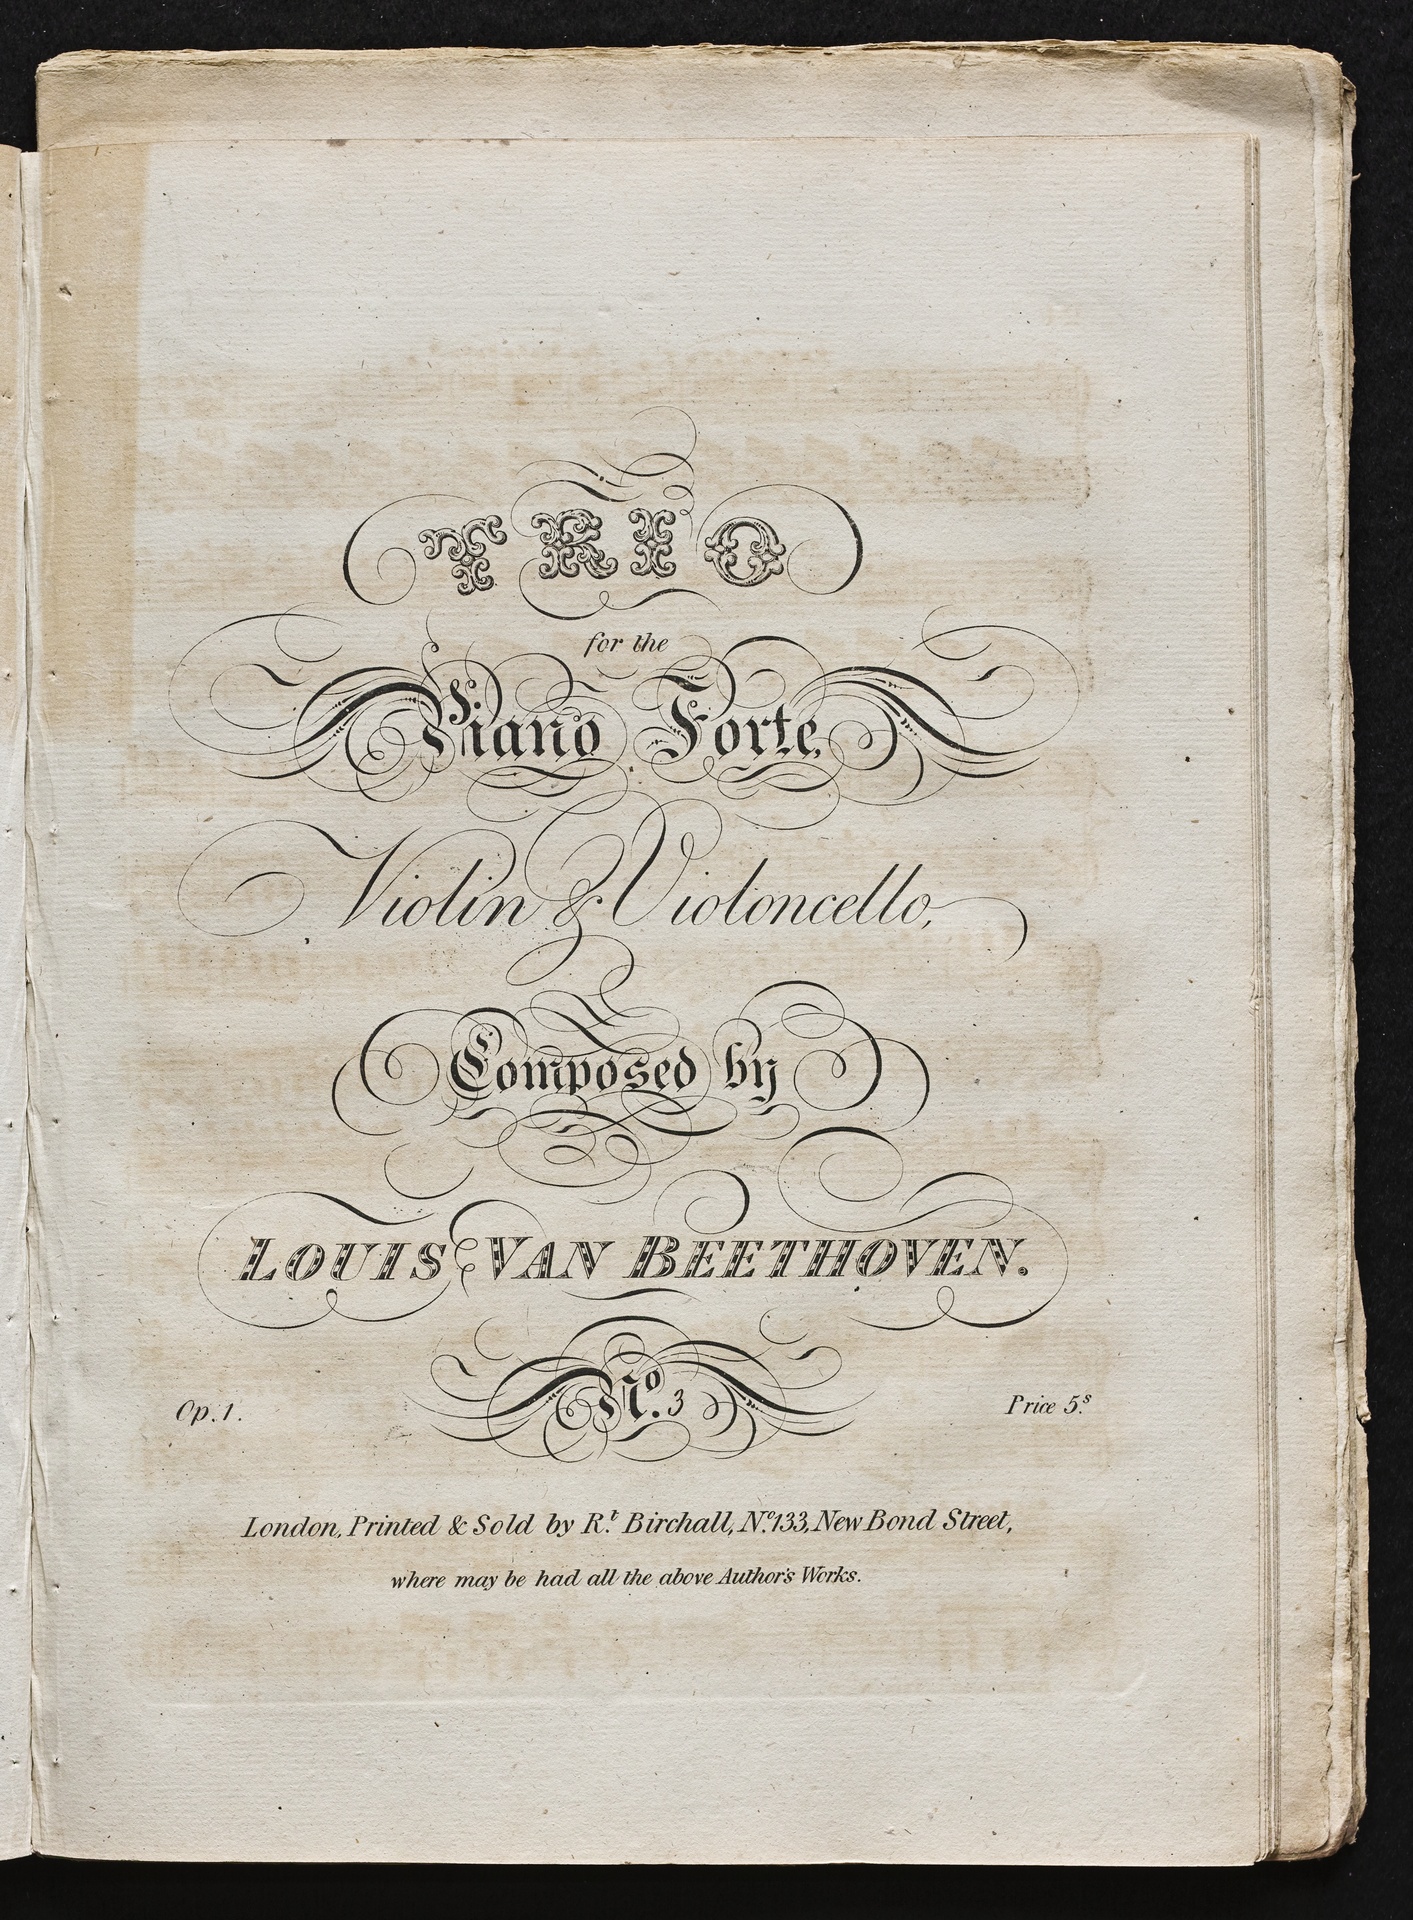 TRIO
for the
Piano Forte,
Violin & Violoncello,
Composed by
LOUIS VAN BEETHOVEN.
Op. 1. No. 3 Price 5.s
London, Printed & Sold by R.t Birchall, No. 133, New Bond Street,
where may be had all the above Author's Works.